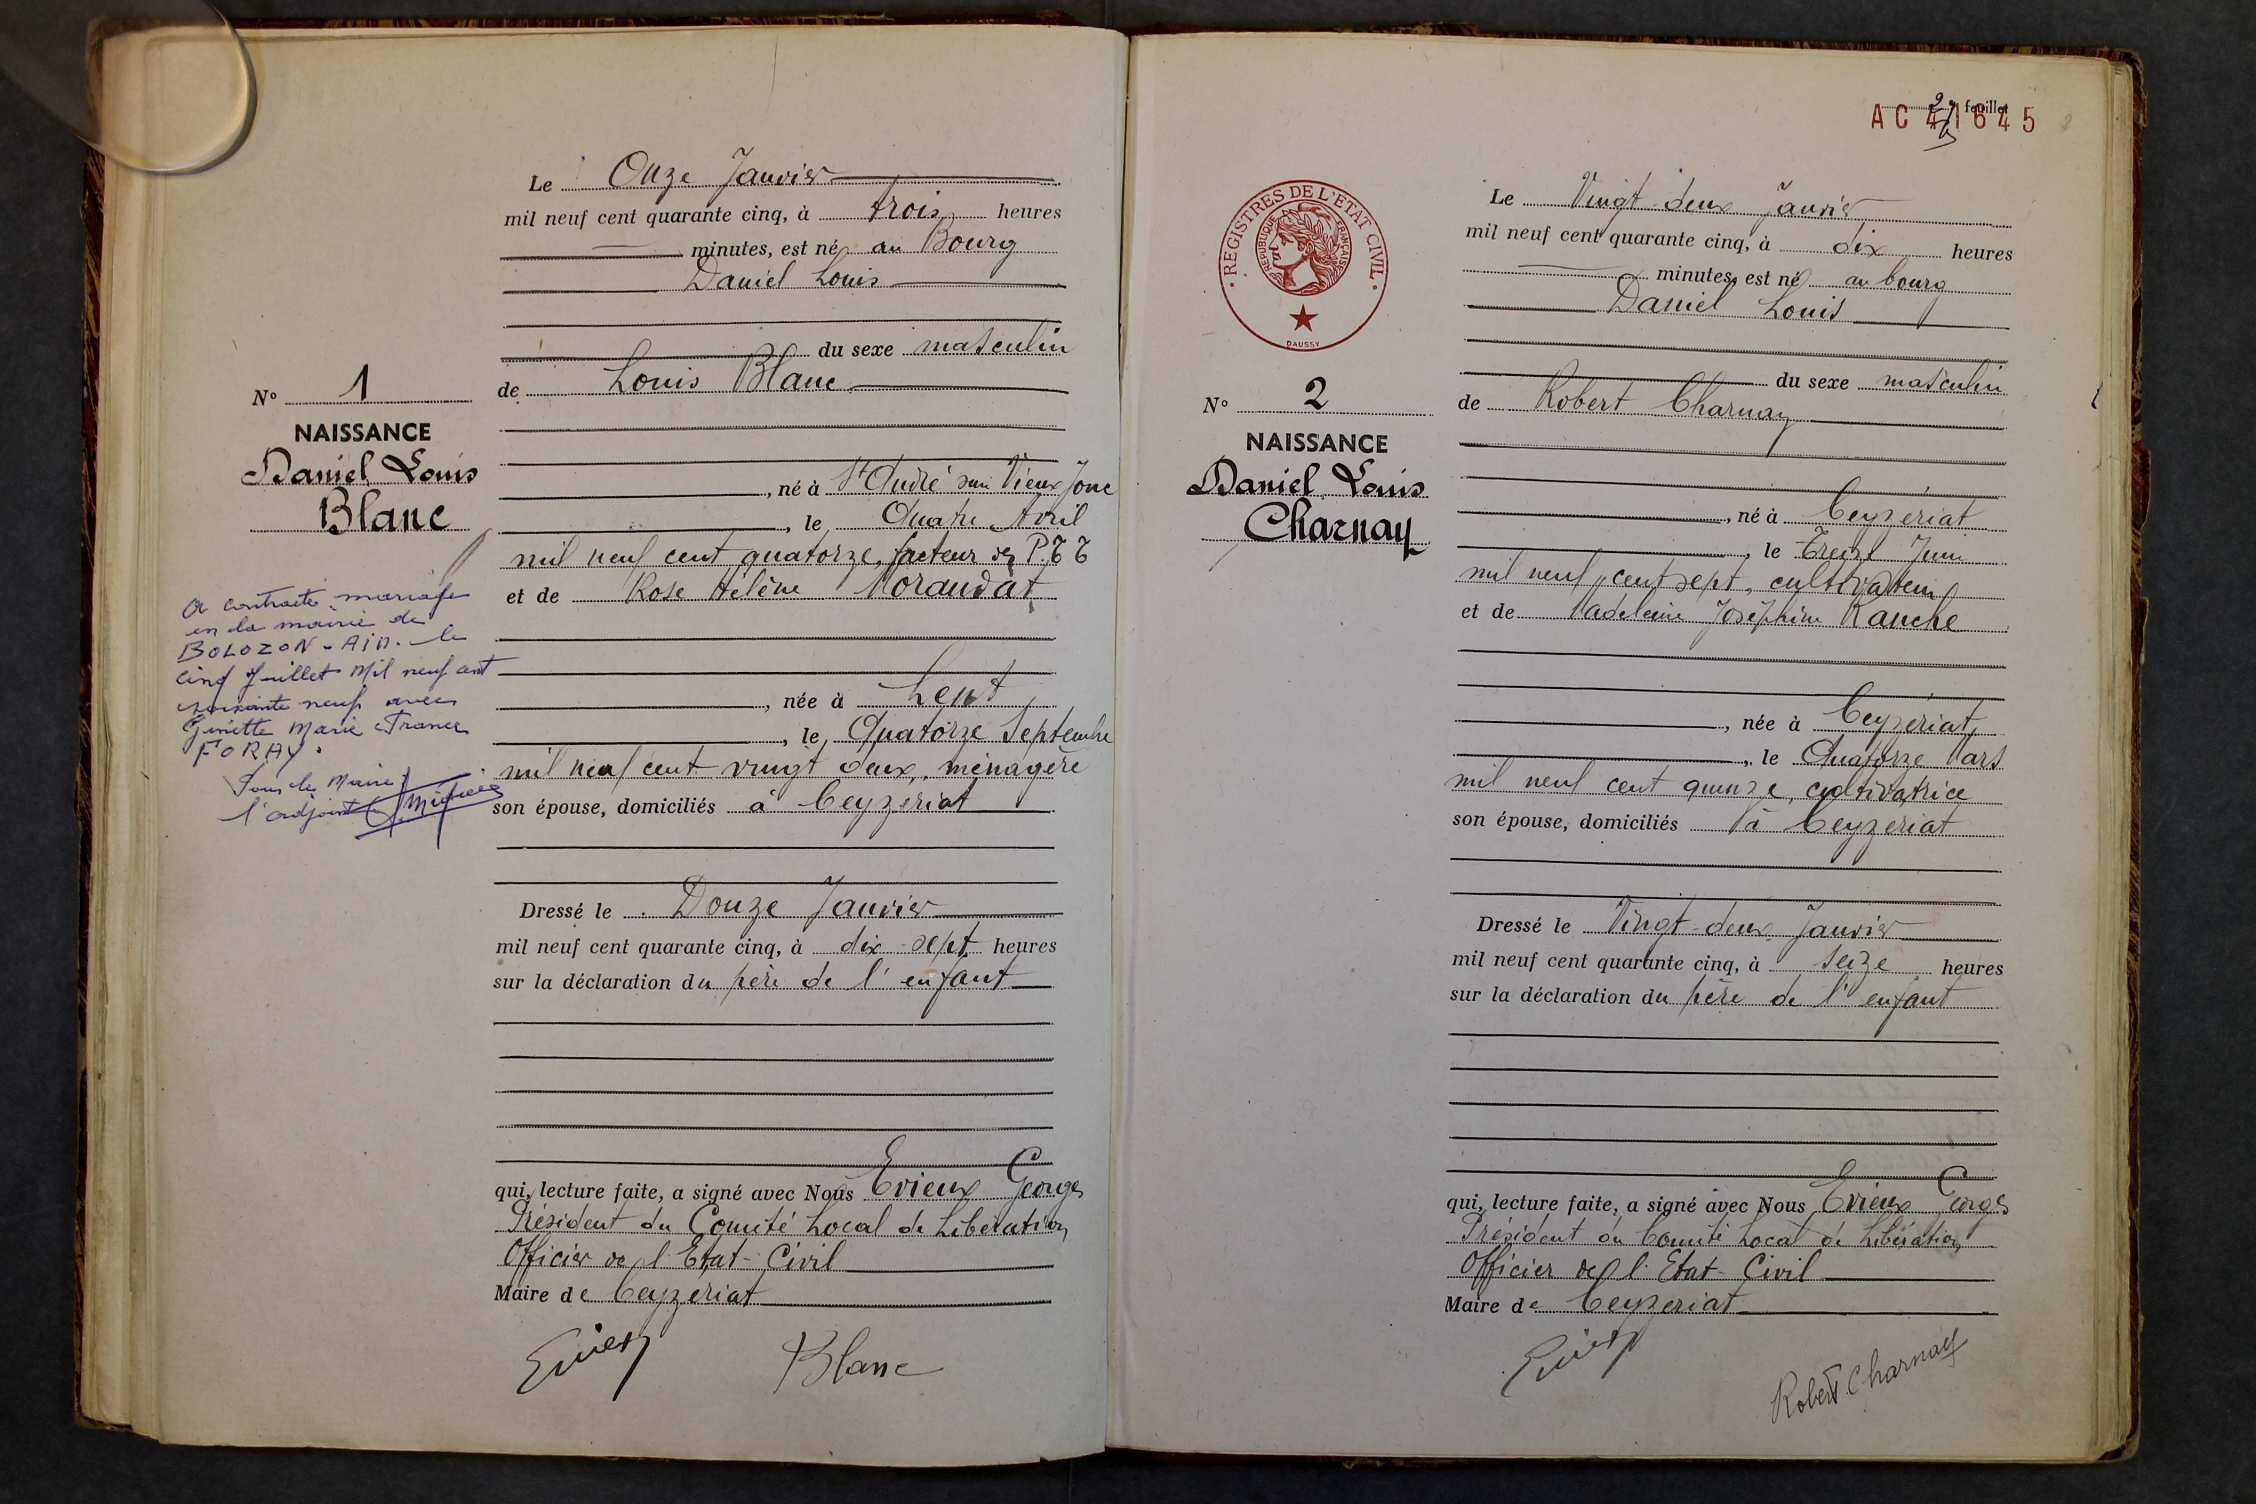 Le Onze Janvier
mil neuf cent quarante cinq, à trois heures
minutes, est né au Bourg
Daniel Louis
du sexe masculin
de Louis Blanc
, né à St André sur Vieux Jonc
, le Quatre Avril
mil neuf cent quatorze, facteur des P.T.T
et de Rose Hélène Morandat
, née à Lent
, le Quatorze Septembre
mil neuf cent vingt deux, ménagère
son épouse, domiciliés à Ceyzériat
Dressé le Douze Janvier
mil neuf cent quarante cinq, à dix-sept heures
sur la déclaration du père de l'enfant
qui, lecture faite, a signé avec Nous Evieux Georges
Président du Comité Local de Libération
Officier de l'Etat-Civil
Maire de Ceyzeriat
Blanc
N° 1
NAISSANCE
Daniel Louis
Blanc
A contracté mariage
en la mairie de
BOLOZON - AIN. le
cinq Juillet Mil neuf cent
soixante neuf avec
Ginette Marie France
FORAY.
Pour le Maire
l'adjoint
feuillet
AC 41645
REGISTRES DE L'ETAT CIVIL
REPUBLIQUE FRANÇAISE
DAUSSY
N° 2
NAISSANCE
Daniel Louis
Charnay
Le Vingt-deux Janvier
mil neuf cent quarante cinq, à dix heures
minutes, est né au bourg
Daniel Louis
du sexe masculin
de Robert Charnay
, né à Ceyzériat
, le Treize Juin
mil neuf cent sept, cultivateur
et de Madeleine Joséphine Ranche
, née à Ceyzériat
, le Quatorze Mars
mil neuf cent quinze, cultivatrice
son épouse, domiciliés à Ceyzeriat
Dressé le Vingt-deux Janvier
mil neuf cent quarante cinq, à seize heures
sur la déclaration du père de l'enfant
qui, lecture faite, a signé avec Nous Evieux Georges
Président du Comité Local de Libération
Officier de l'Etat-Civil
Maire de Ceyzeriat
Robert Charnay